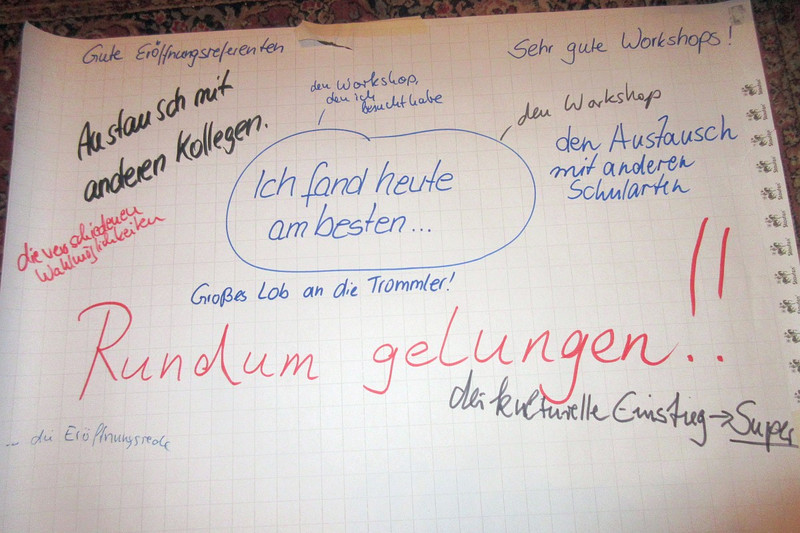 Gute Eröffnungsreferenten
Sehr gute Workshops!
Austausch mit
anderen Kollegen.
den Workshop,
den ich
besucht habe
den Workshop
den Austausch
mit anderen
Schularten
Ich fand heute
am besten...
die verschiedenen
Wahlmöglichkeiten
Großes Lob an die Trommler!
Rundum gelungen!!
der kulturelle Einstieg → Super
... die Eröffnungsrede